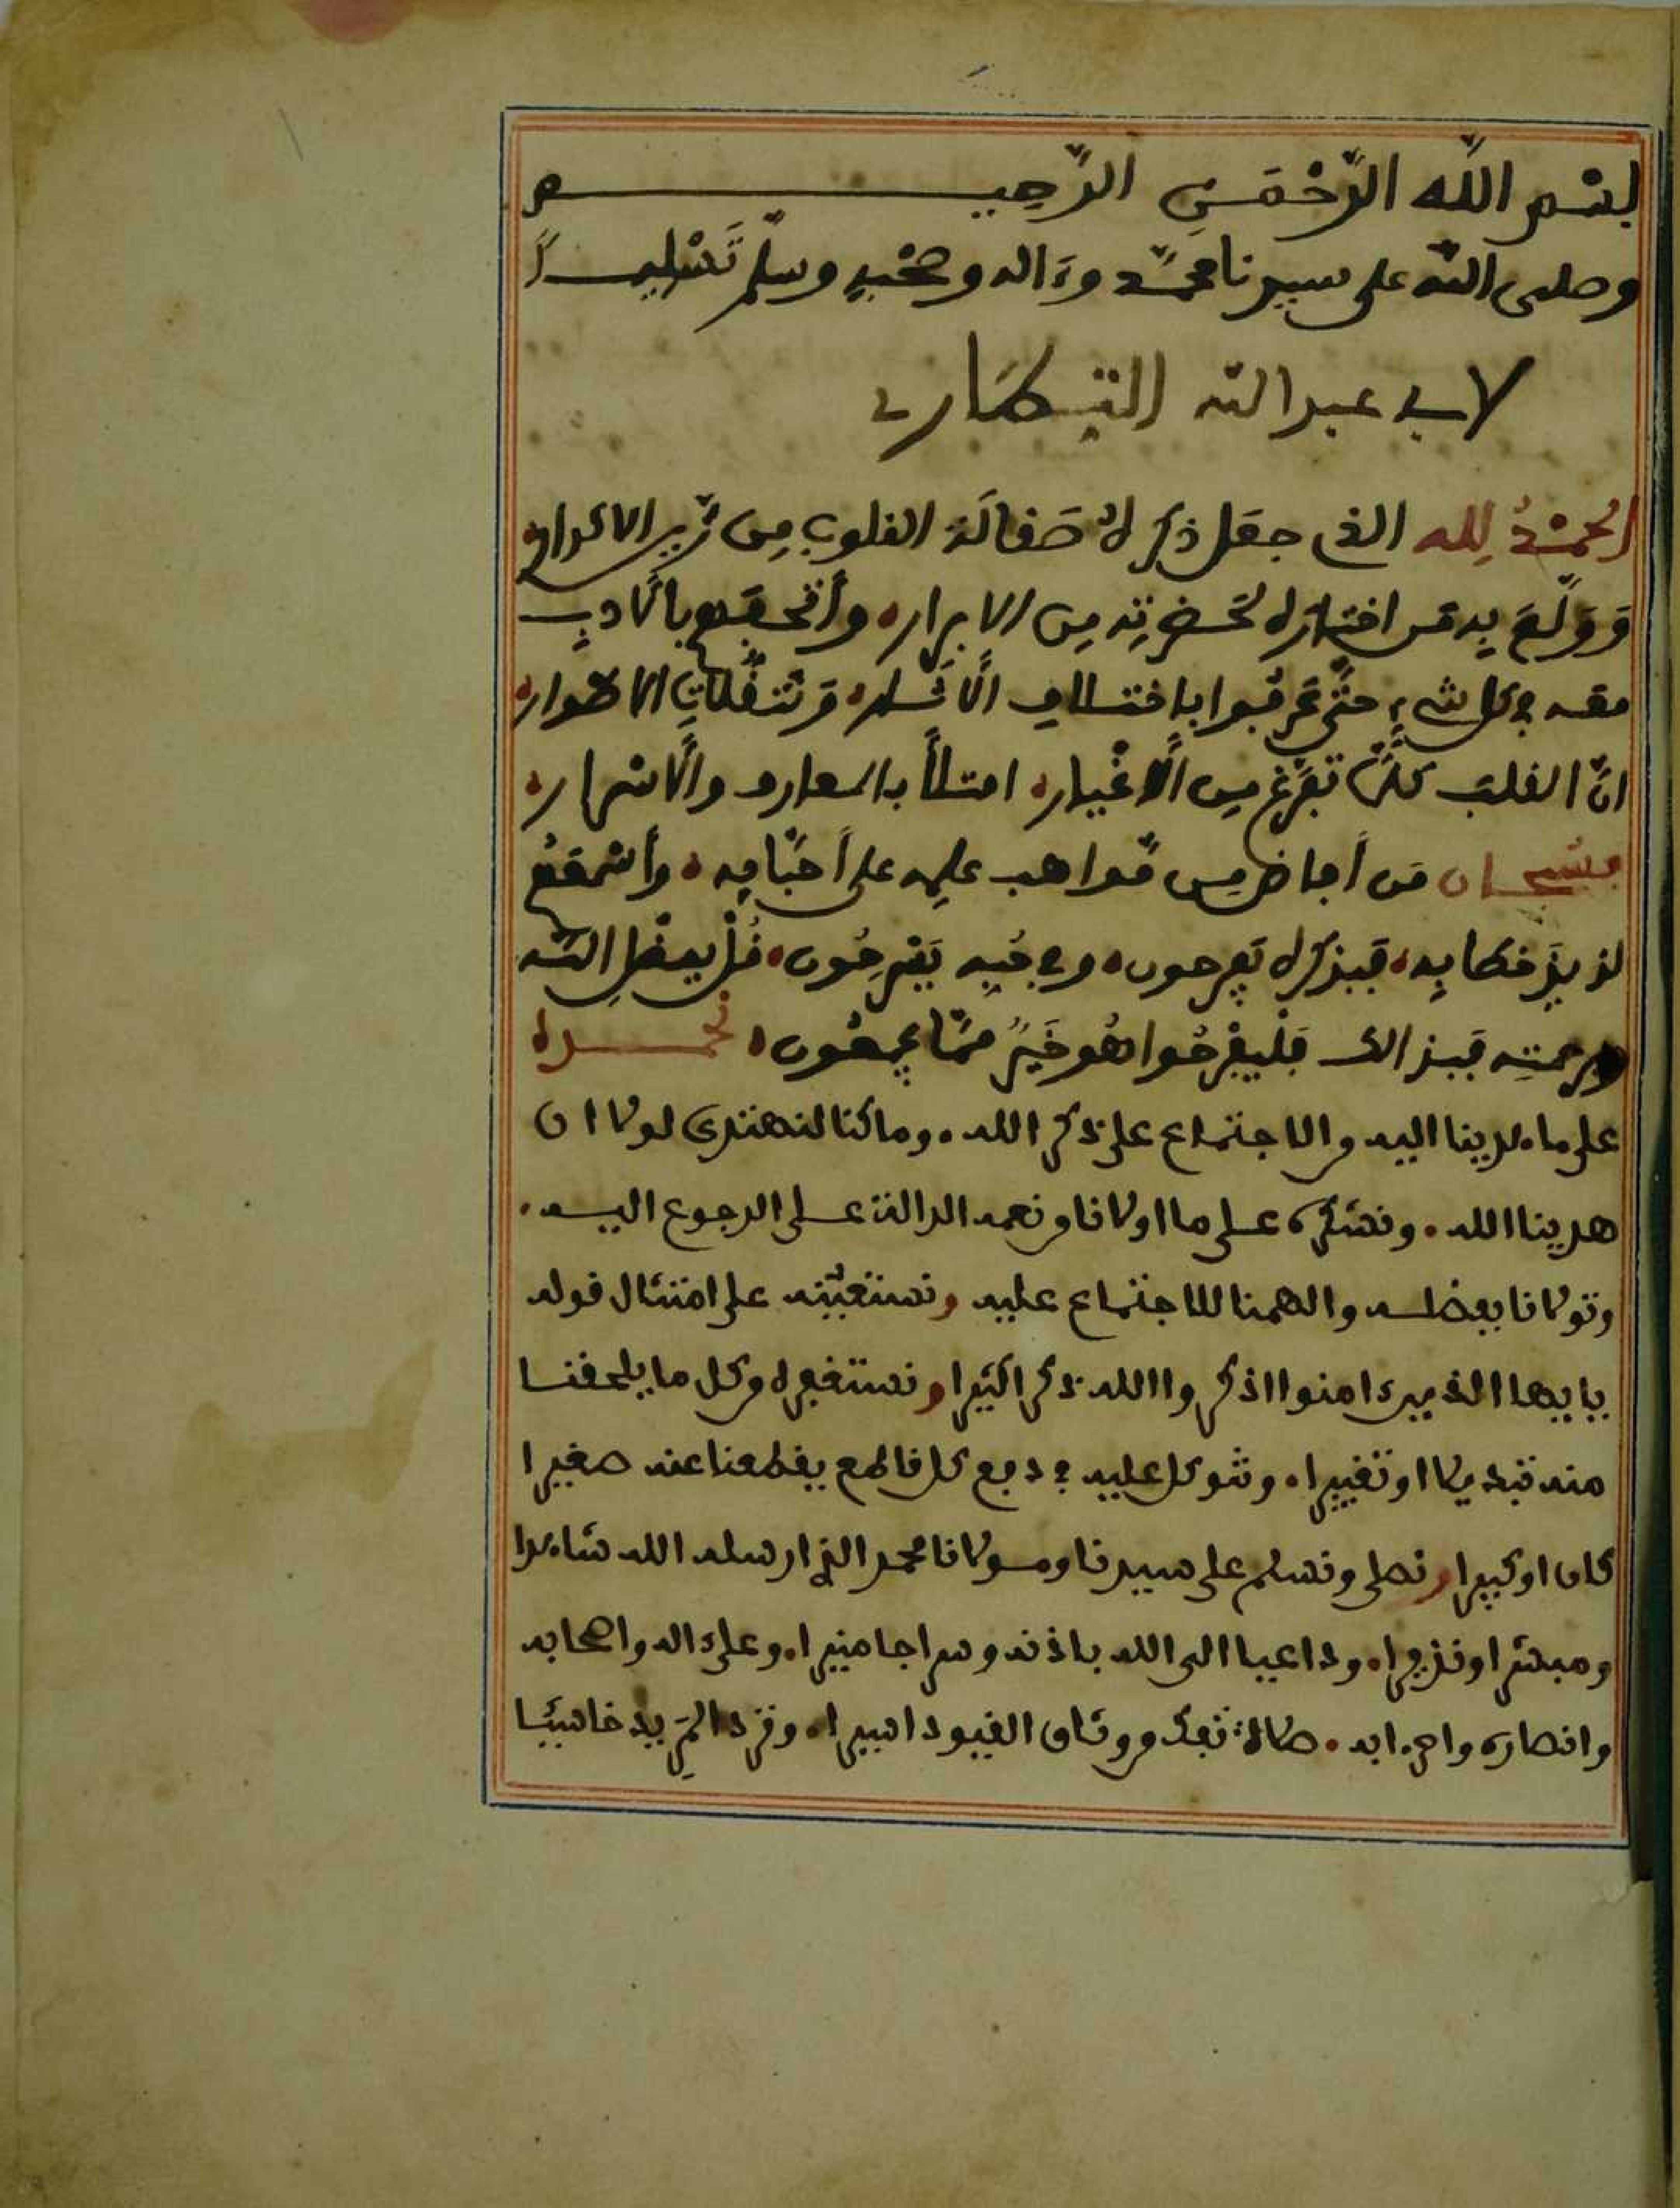 بسْم اللّه الرَّحْمَنِ الرَّحِيم
وصلى الله على سيدنا محمّد وءَاله وصحْبِهِ وسلّم تَسْلِيماً
لابے عبد الله التيكمارے
الحمْدُ لِله الذى جعَل ذكره صَفالَة الفلوبِ مِن الاكدار
وَوَلَّعَ بِهِ مَن اختاره لحَضرتِه مِن الابرار، وأتحَبَهم بالَادبِ
معَه فى كل شےءٍ حتَّى باختلاف الَاثَار، وَتنَفُّلاتِ الاطوار
انّ الفلبَ كلَّمَا تَفَرَّغ مِن الَاغْيار، امتلَأ بالمعارف والَاسْرار،
فسُبْحان مَن أَفاض مِن مَّواهب علمِه على أَحْبَابِه، وأَسْمَعَهُم
لذيذَ خطَابِه، فبذكره يَفرحون، وفى حُبِّه يَمْرحُون، فُلْ بِفضْلِ اللّه
وبرحمتِه فبذالك فَلْيَفْرَحُوا هُو خَيْرٌ مِّمَّا يجمعُون، نحمده
على ما هدينا اليه من الاجتماع على ذكر الله، وما كنا لنهتدى لولا ان
هدينا الله، ونشكره على ما اولانا من نعمه الدالة على الرجوع اليه،
وتولانا بفضله والهمنا للاجتماع عليه ونستعينه على امتثال فوله
يايها الذين ءامنوا اذكروا الله ذكرا كثيرا ونستغفره من كل ما يلحفنا
منه تبديلا او تغييرا، ونتوكل عليه فى دفع كل فاطع يفطعنا عنه صغيرا
كان او كبيرا ونصلى ونسلم على سيدنا ومولانا محمد الذى ارسله الله شاهدا
ومبشرا ونذيرا، وداعيا الى الله باذنه وسراجا منيرا، وعلىءاله واصحابه
وانصاره واحزابه، صلاة تفك من وثاق الفيود اسيرا، وترد المَرِيد خاسئا